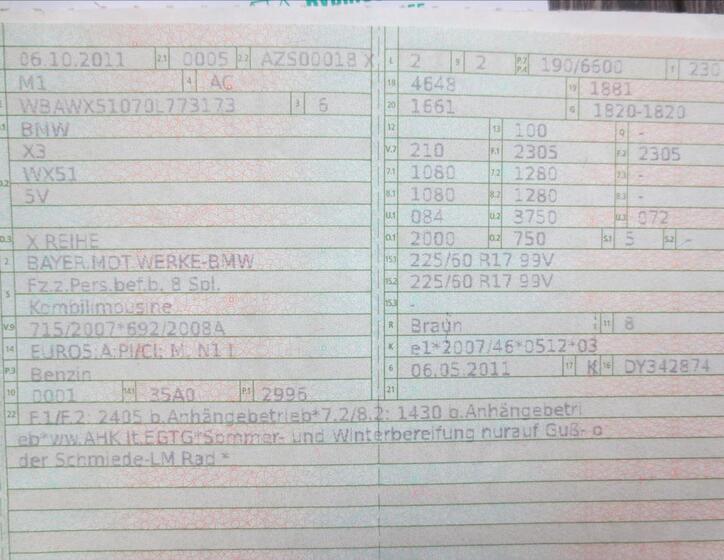 06.10.2011 2.1 0005 2.2 AZS00018 X
M1 4 AC
WBAWX51070L773173 3 6
BMW
X3
WX51
5V
D.3 X REIHE
2 BAYER.MOT.WERKE-BMW
5 Fz.z.Pers.bef.b. 8 Spl.
Kombilimousine
V.9 715/2007*692/2008A
14 EURO5;A;PI/CI; M, N1 I
P.3 Benzin
10 0001 14.1 35A0 P.1 2996
L 2 9 2 P.2 P.4 190/6600 T 230
18 4648 19 1881
20 1661 G 1820-1820
12 13 100 Q -
V.7 210 F.1 2305 F.2 2305
7.1 1080 7.2 1280 7.3 -
8.1 1080 8.2 1280 8.3 -
U.1 084 U.2 3750 U.3 072
O.1 2000 O.2 750 S.1 5 S.2 -
15.1 225/60 R17 99V
15.2 225/60 R17 99V
15.3 -
R Braun 11 8
K e1*2007/46*0512*03
6 06.05.2011 17 K 16 DY342874
21
22 F.1/F.2: 2405 b.Anhängebetrieb*7.2/8.2: 1430 b.Anhängebetri
eb*ww.AHK lt.EGTG*Sommer- und Winterbereifung nurauf Guß- o
der Schmiede-LM Rad *